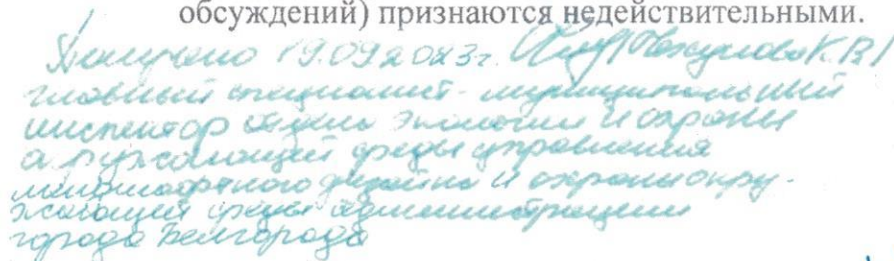 обсуждений) признаются недействительными.
Получено 19.09.2023г. К.В./
главный специалист-муниципальный
инспектор отдела экологии и охраны
окружающей среды управления
ландшафтного дизайна и охраны окру-
жающей среды администрации
города Белгорода